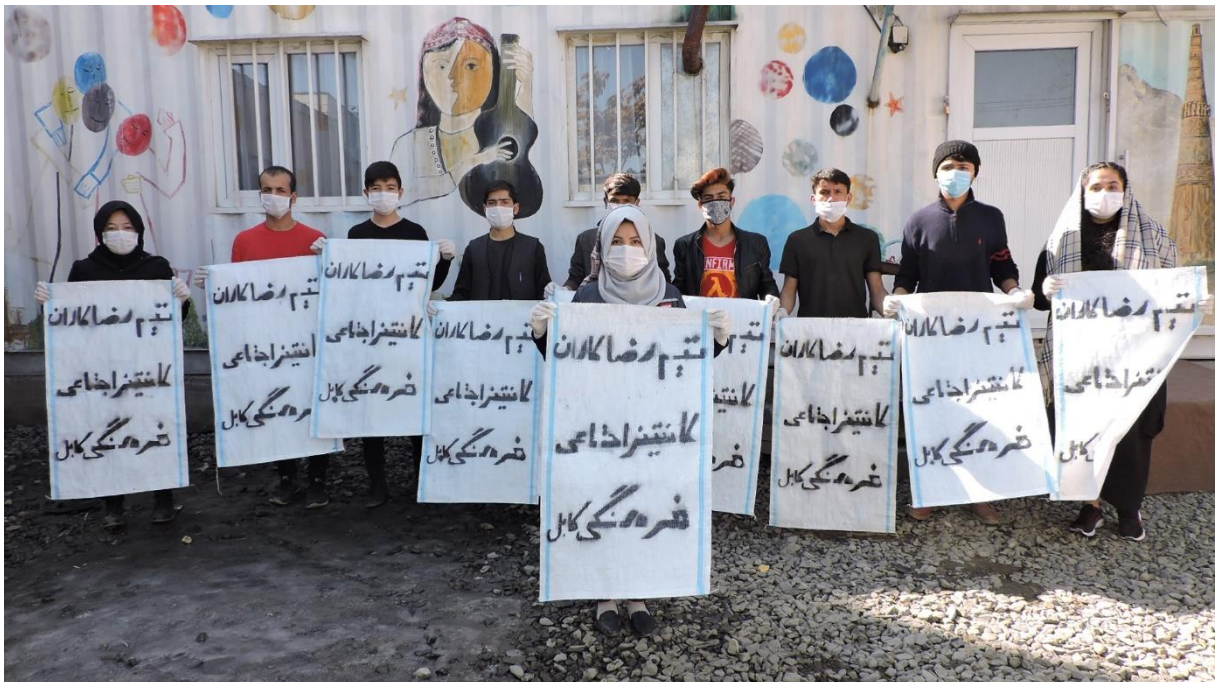 تیم رضاکاران
کانتینر اجتماعی
فرهنگی کابل
تیم رضاکاران
اجتماعی
فرهنگی کابل
تیم رضاکاران
کانتینر اجتماعی
فرهنگی کابل
تیم رضاکاران
کانتینر اجتماعی
فرهنگی کابل
تیم رضاکاران
کانتینر اجتماعی
فرهنگی کابل
تیم
کانتینر
تیم رضاکاران
کانتینر اجتماعی
فرهنگی کابل
تیم رضاکاران
کانتینر اجتماعی
فرهنگی کابل
تیم رضاکاران
کانتینر اجتماعی
کابل